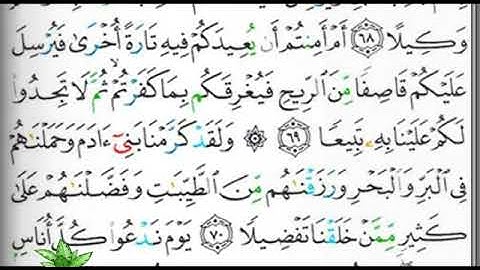 وَكِيلًا ٦٨ أَمْ أَمِنتُمْ أَن يُعِيدَكُمْ فِيهِ تَارَةً أُخْرَىٰ فَيُرْسِلَ
عَلَيْكُمْ قَاصِفًا مِّنَ ٱلرِّيحِ فَيُغْرِقَكُم بِمَا كَفَرْتُمْ ۙ ثُمَّ لَا تَجِدُوا۟
لَكُمْ عَلَيْنَا بِهِۦ تَبِيعًا ٦٩ ۞ وَلَقَدْ كَرَّمْنَا بَنِىٓ ءَادَمَ وَحَمَلْنَـٰهُمْ
فِى ٱلْبَرِّ وَٱلْبَحْرِ وَرَزَقْنَـٰهُم مِّنَ ٱلطَّيِّبَـٰتِ وَفَضَّلْنَـٰهُمْ عَلَىٰ
كَثِيرٍ مِّمَّنْ خَلَقْنَا تَفْضِيلًا ٧٠ يَوْمَ نَدْعُوا۟ كُلَّ أُنَاسٍۭ